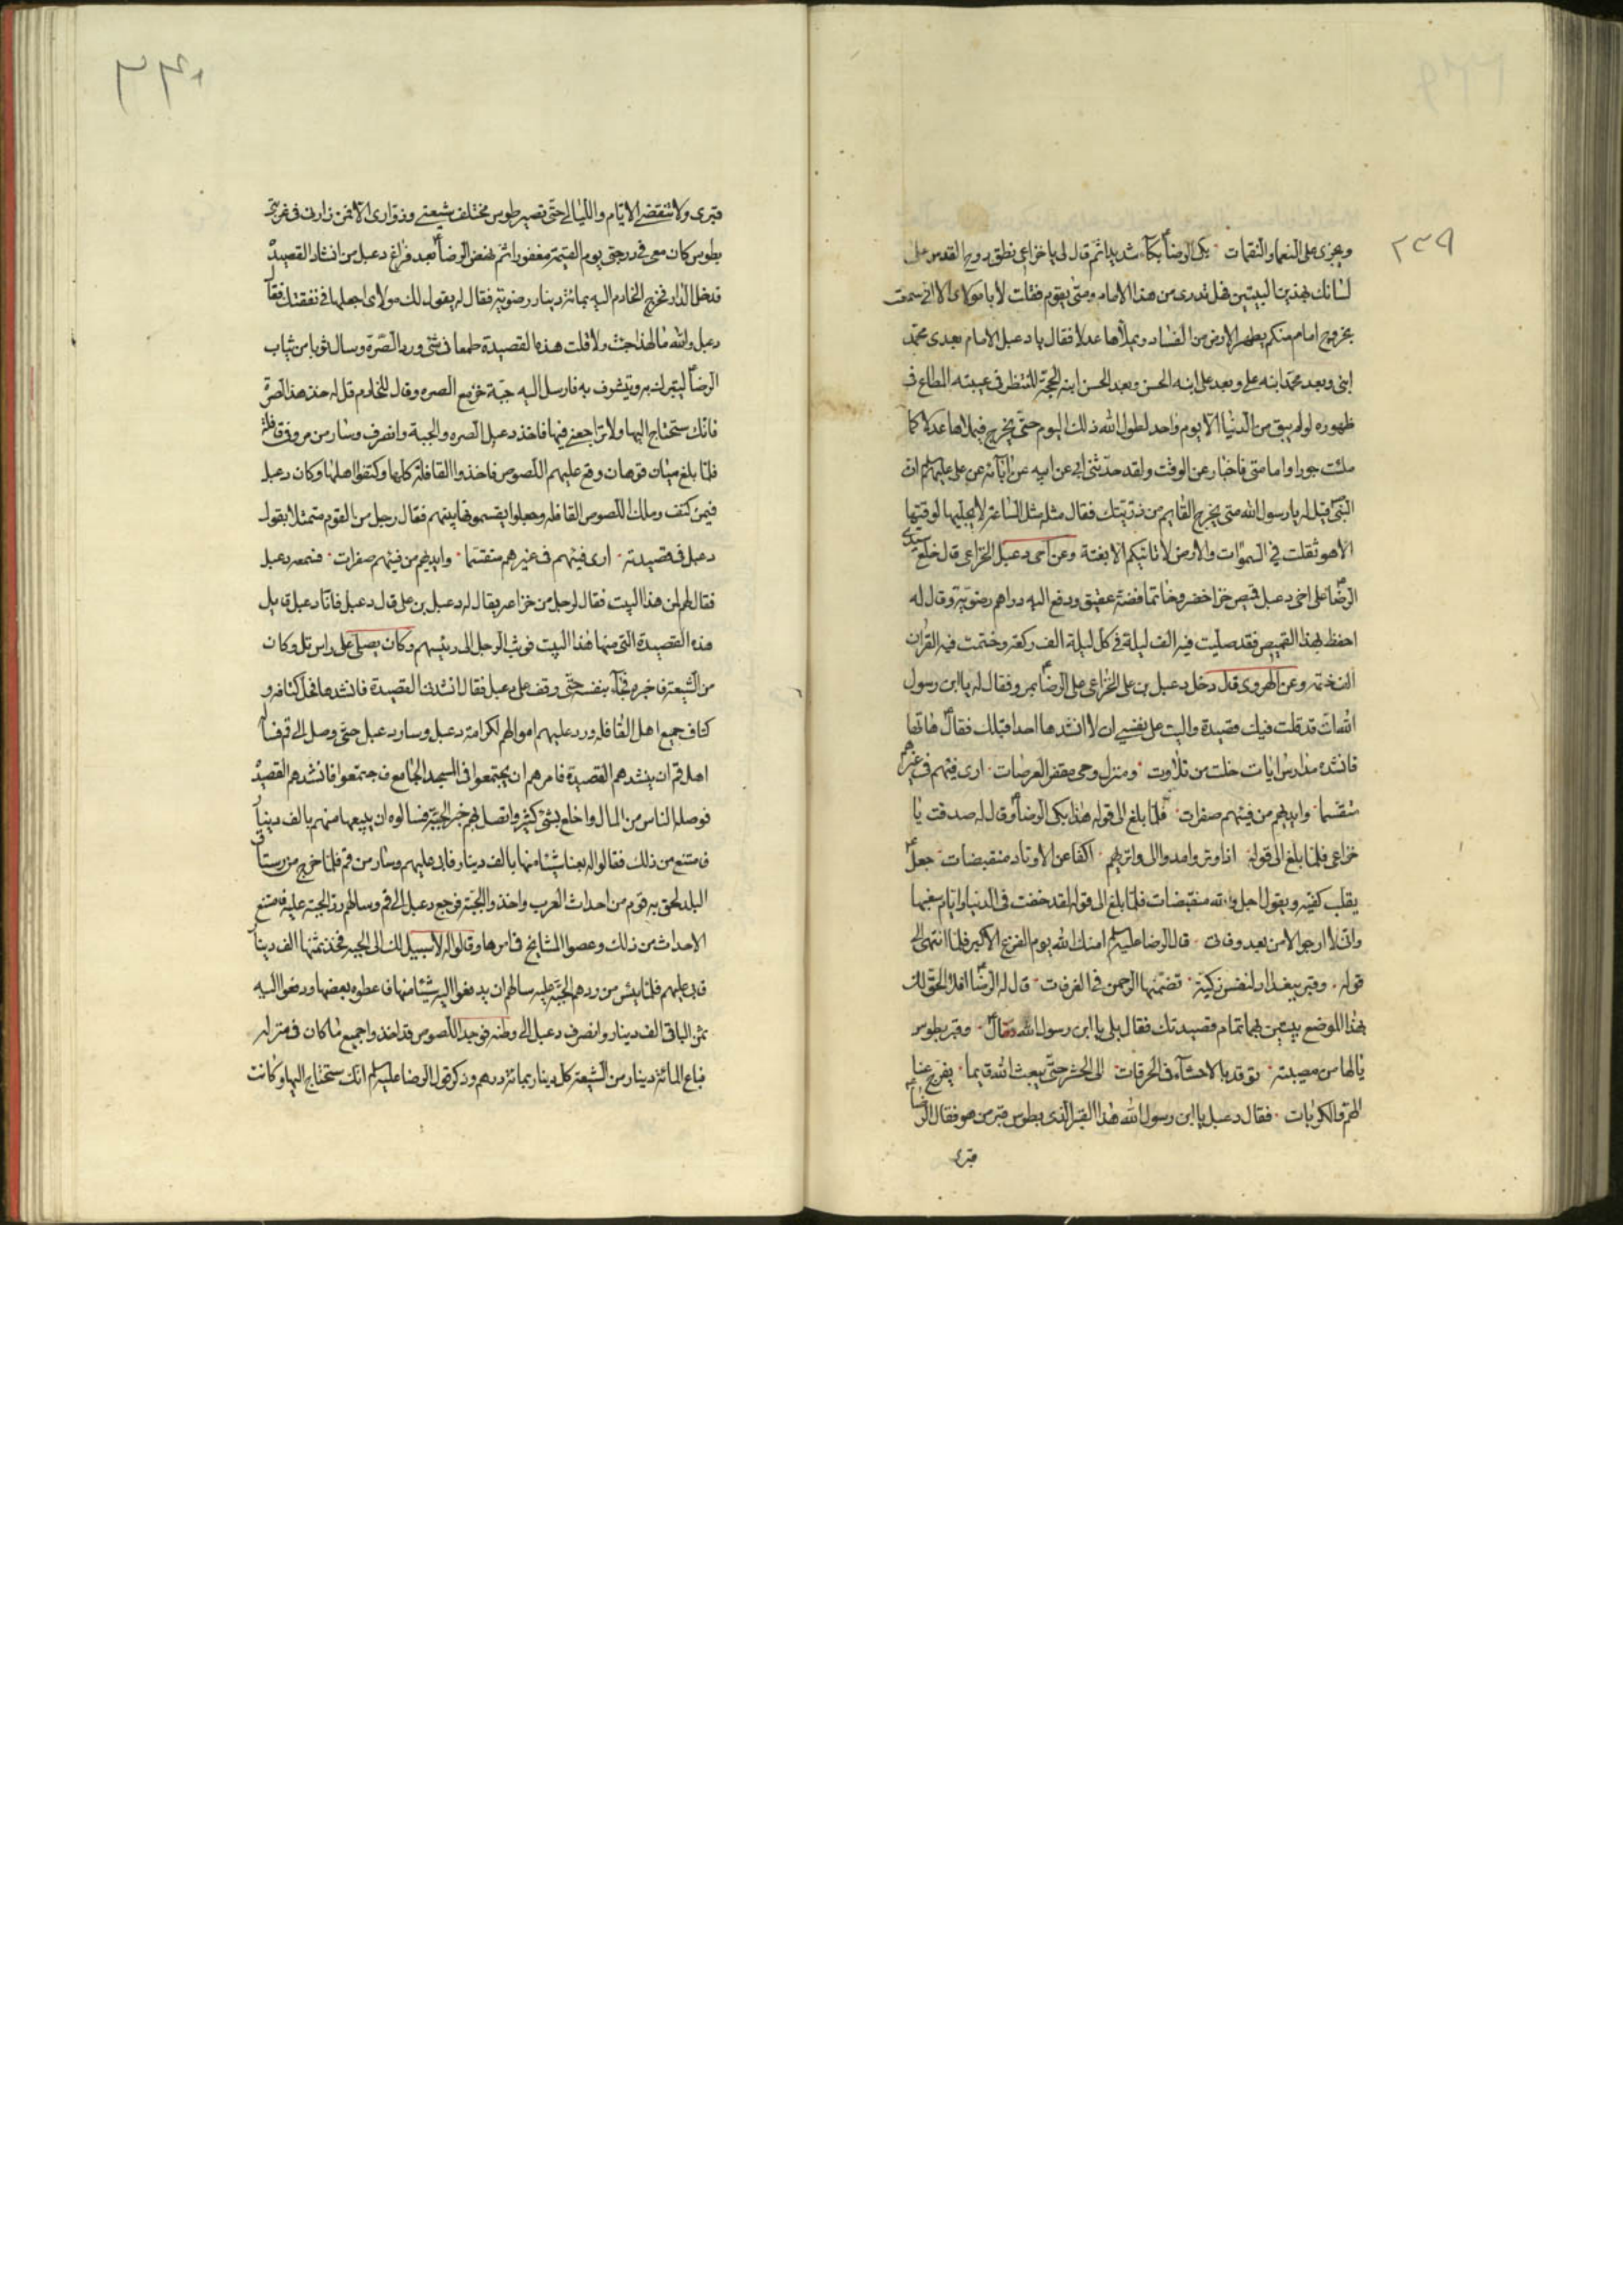 ٢٣٩
ويجزى على النعماء والنقمات بكى الرضا بكاء شديدا ثم قال لى يا خزاعى نطق روح القدس على
لسانك بهذين البيتين فهل تدرى من هذا الامام ومتى يقوم فقلت لا يا مولاى الا انى سمعت
بخروج امام منكم يطهر الارض من الفساد ويملأها عدلا فقال يا دعبل الامام بعدى محمد
ابنى وبعد محمد ابنه على وبعد على ابنه الحسن وبعد الحسن ابنه الحجة المنتظر فى غيبته المطاع فى
ظهوره لو لم يبق من الدنيا الا يوم واحد لطول الله ذلك اليوم حتى يخرج فيملاها عدلا كما
ملئت جورا واما متى فاخبار عن الوقت ولقد حدثنى ابى عن ابيه عن ابائه عن على عليهم السلم ان
النبى قيل له يا رسول الله متى يخرج القايم من ذريتك فقال مثله مثل الساعة لا يجليها لوقتها
الا هو ثقلت فى السموات والارض لا تاتيكم الا بغتة وعن اخى دعبل الخزاعى قال خلع سيدى
الرضا على اخى دعبل قميص خز اخضر وخاتما فضة عقيق ودفع اليه دراهم رضوية وقال له
احفظ بهذا القميص فقد صليت فيه الف ليلة فى كل ليلة الف ركعة وختمت فيه القران
الف ختمة وعن الهروى قال دخل دعبل بن على الخزاعى على الرضا بمرو فقال له يا ابن رسول
الله انى قد قلت فيك قصيدة واليت على نفسى ان لا انشدها احدا قبلك فقال هاتها
فانشده مدارس ايات خلت من تلاوت ومنزل وحى مقفر العرصات ارى فيئهم فى غيرهم
متقسما وايديهم من فيئهم صفرات فلما بلغ الى قوله هذا بكى الرضا وقال له صدقت يا
خزاعى فلما بلغ الى قوله اذا وتروا مدوا الى واتريهم اكفا عن الاوتار منقبضات جعل
يقلب كفيه ويقول اجل والله منقبضات فلما بلغ الى قوله لقد خفت فى الدنيا وايام سعيها
وانى لارجو الامن بعد وفاتى قال الرضا عليه السلم امنك الله يوم الفزع الاكبر فلما انتهى الى
قوله وقبر ببغداد لنفس زكية تضمنها الرحمن فى الغرفات قال له الرضا افلا الحق لك
بهذا الموضع بيتين بهما تمام قصيدتك فقال بلى يا ابن رسول الله فقال وقبر بطوس
يا لها من مصيبة توقد بالاحشاء فى الحرقات الى الحشر حتى يبعث الله قايما يفرج عنا
الهم والكربات فقال دعبل يا ابن رسول الله هذا القبر الذى بطوس قبر من هو فقال الرضا
قبرى
قبرى ولا تنقضى الايام والليالى حتى تصير طوس مختلف شيعتى وزوارى الا فمن زارنى فى غربتى
بطوس كان معى فى درجتى يوم القيمة مغفورا ثم نهض الرضا بعد فراغ دعبل من انشاد القصيدة
فدخل الدار فخرج الخادم اليه بمائة دينار رضوية فقال له يقول لك مولاى اجعلها فى نفقتك فقال
دعبل والله ما لهذا جئت ولا قلت هذه القصيدة طمعا فى شئ ورد الصرة وسال ثوبا من ثياب
الرضا ليتبرك به ويتشرف به فارسل اليه جبة خز مع الصره وقال للخادم قل له خذ هذه الصرة
فانك ستحتاج اليها ولا تراجعنى فيها فاخذ دعبل الصره والجبة وانصرف وسار من مرو فى قافلة
فلما بلغ ميان قوهان وقع عليهم اللصوص فاخذوا القافلة كلها وكتفوا اهلها وكان دعبل
فيمن كتف وملك اللصوص القافلة وجعلوا يقسمونها بينهم فقال رجل من القوم متمثلا بقول
دعبل فى قصيدته ارى فيئهم فى غيرهم متقسما وايديهم من فيئهم صفرات فسمعه دعبل
فقال لهم لمن هذا البيت فقال لرجل من خزاعه يقال له دعبل بن على قال دعبل فانا دعبل قايل
هذه القصيدة التى منها هذا البيت فوثب الرجل الى رئيسهم وكان يصلى على راس تل وكان
من الشيعة فاخبره فجاء بنفسه حتى وقف على دعبل فقال انشدنا القصيدة فانشدها فحل كتافه و
كتاف جميع اهل القافله ورد عليهم اموالهم لكرامة دعبل وسار دعبل حتى وصل الى قم فساله
اهل قم ان ينشدهم القصيدة فامرهم ان يجتمعوا فى المسجد الجامع فاجتمعوا فانشدهم القصيدة
فوصله الناس من المال والخلع بشئ كثير واتصل بهم خبر الجبة فسالوه ان يبيعها منهم بالف دينار
فامتنع من ذلك فقالوا له بعنا شيئا منها بالف دينار فابى عليهم وسار من قم فلما خرج من رستاق
البلد لحق به قوم من احداث العرب واخذوا الجبة فرجع دعبل الى قم وسالهم رد الجبة عليه فامتنع
الاحداث من ذلك وعصوا المشايخ فى امرها وقالوا له لا سبيل لك الى الجبه فخذ ثمنها الف دينار
فابى عليهم فلما يئس من ردهم الجبة عليه سالهم ان يدفعوا اليه شيئا منها فاعطوه بعضها ودفعوا اليه
ثمن الباقى الف دينار وانصرف دعبل الى وطنه فوجد اللصوص قد اخذوا جميع ما كان فى منزله
فباع المائة دينار من الشيعة كل دينار بمائة درهم وذكر قول الرضا عليه السلم انك ستحتاج اليها وكانت